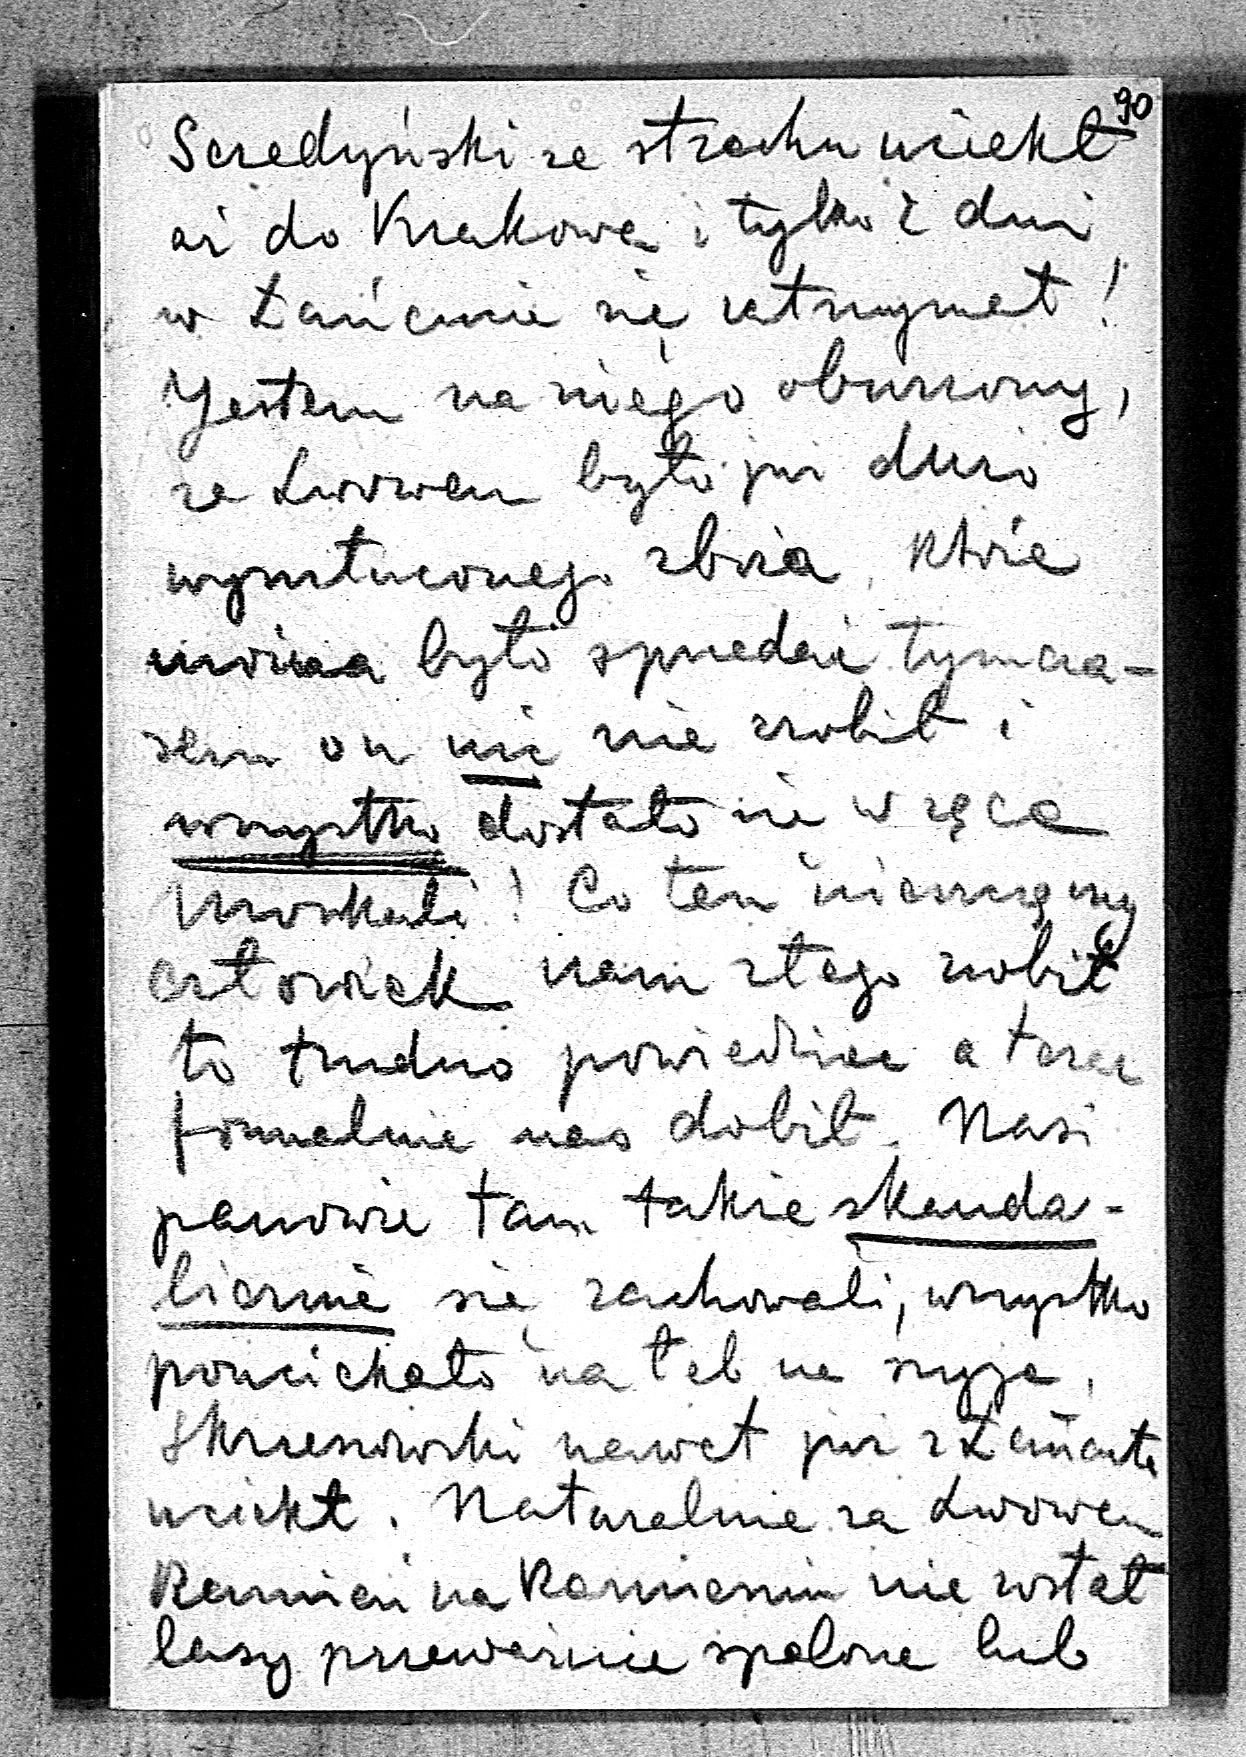 90
Seredyński ze strachu uciekł
aż do Krakowa i tylko 2 dni
w Łańcucie się zatrzymał!
Jestem na niego oburzony,
za Lwowem było już dużo
wymłuconego zboża, które
można było sprzedać tymcza-
sem on nic nie zrobił i
wszystko dostało się w ręce
Moskali! Co ten nieszczęsny
człowiek nam złego zrobił
to trudno powiedzieć a teraz
formalnie nas dobił. Nasi
panowie tam takie skanda-
licznie się zachowali, wszystko
pouciekało na łeb na szyję,
Skrzeszowski nawet już z Łańcuta
uciekł. Naturalnie za Lwowem
Kamień na Kamieniu nie został
lasy przeważnie spalone lub